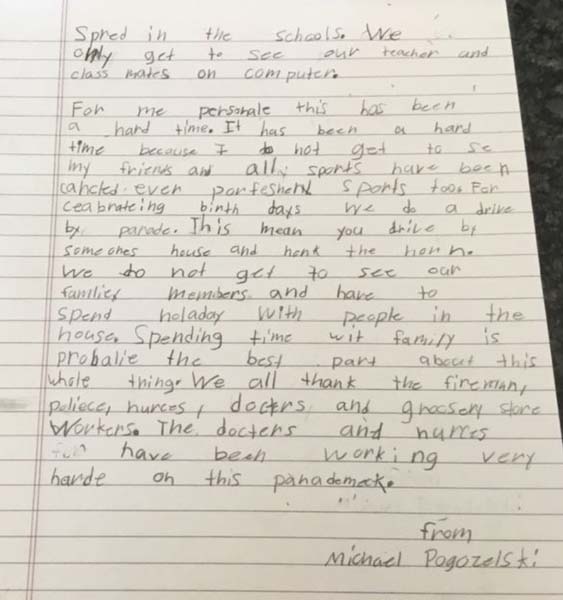 Spred in the schools. We
only get to see our teacher and
class mates on computer.
For me personale this has been
a hard time. It has been a hard
time because I do not get to se
my friends and ally sports have been
cancled even porfeshenl sports too. For
ceabrateing birth days we do a drive
by parade. This mean you drive by
someones house and honk the horn.
We do not get to see our
families members and have to
spend holaday with people in the
house. Spending time wit family is
probalie the best part about this
whole thing. We all thank the fireman,
poliece, nurces, docters, and grocsery store
workers. The docters and nurces
have been working very
harde on this panademeck.
from
Michael Pogozelski